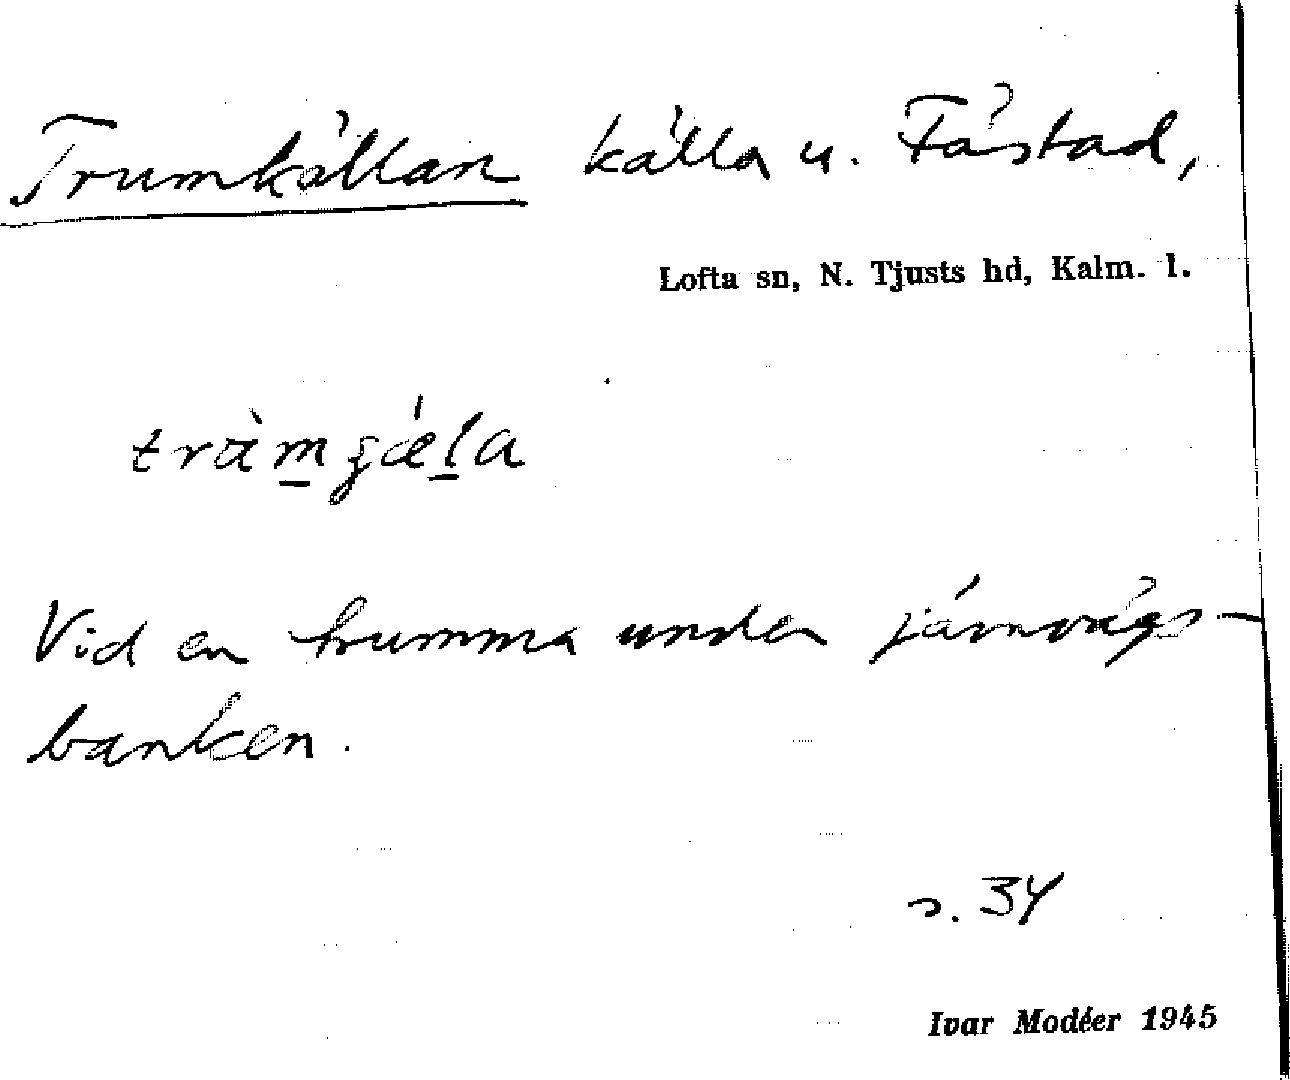 Trumkällan källa u. Fästad,
Lofta sn, N. Tjusts hd, Kalm. l.
Vid en trumma under järnvägs-
banken.
s. 34
Ivar Modéer 1945